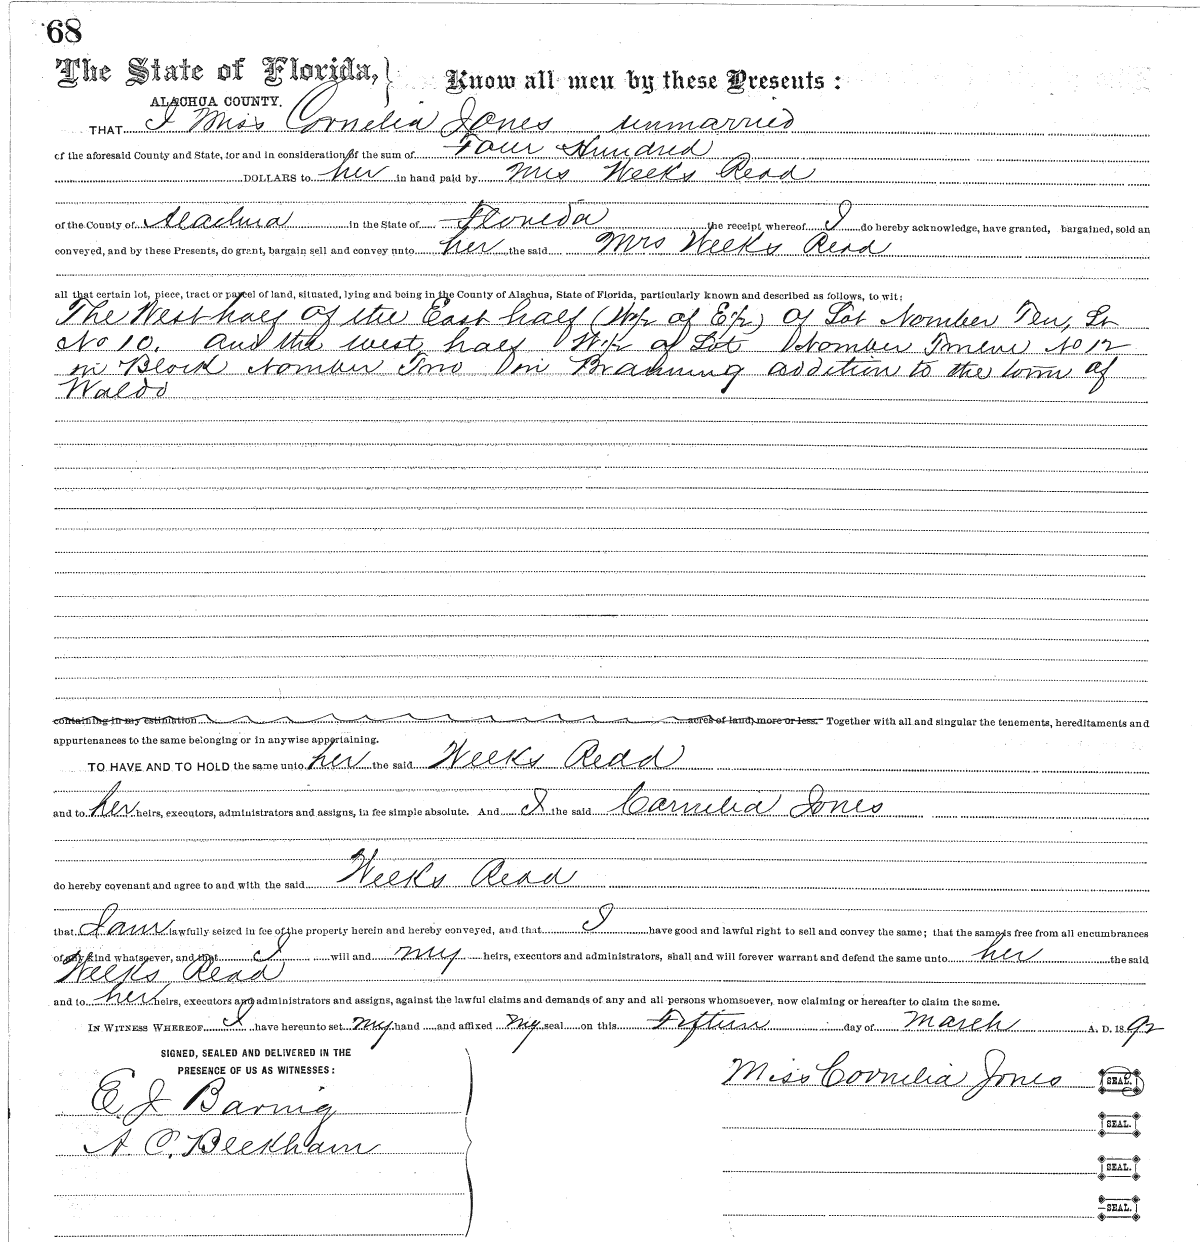 68
The State of Florida,
ALACHUA COUNTY.
Know all men by these Presents:
THAT I Miss Cornelia Jones unmarried
of the aforesaid County and State, for and in consideration of the sum of Four Hundred
DOLLARS to her in hand paid by Mrs Weeks Read
of the County of Alachua in the State of Florida the receipt whereof I do hereby acknowledge, have granted, bargained, sold an
conveyed, and by these Presents, do grant, bargain sell and convey unto her the said Mrs Weeks Read
all that certain lot, piece, tract or parcel of land, situated, lying and being in the County of Alachua, State of Florida, particularly known and described as follows, to wit:
The West half of the East half (W½ of E½) of Lot Nomber Ten, Lt
No 10. and the west half W½ of Lot Nomber Twelve No 12
in Block Nomber Two in Branning addition to the town of
Waldo
containing in my estimation acres of land, more or less. Together with all and singular the tenements, hereditaments and
appurtenances to the same belonging or in anywise appertaining.
TO HAVE AND TO HOLD the same unto her the said Weeks Read
and to her heirs, executors, administrators and assigns, in fee simple absolute. And I the said Cornelia Jones
do hereby covenant and agree to and with the said Weeks Read
that I am lawfully seized in fee of the property herein and hereby conveyed, and that I have good and lawful right to sell and convey the same; that the same is free from all encumbrances
of any kind whatsoever, and that I will and my heirs, executors and administrators, shall and will forever warrant and defend the same unto her the said
Weeks Read
and to her heirs, executors and administrators and assigns, against the lawful claims and demands of any and all persons whomsoever, now claiming or hereafter to claim the same.
IN WITNESS WHEREOF I have hereunto set my hand and affixed my seal on this Fifteen day of March A. D. 1892
SIGNED, SEALED AND DELIVERED IN THE
PRESENCE OF US AS WITNESSES:
Miss Cornelia Jones SEAL.
E. J. Barnig
SEAL.
A C. Beekham
SEAL.
SEAL.